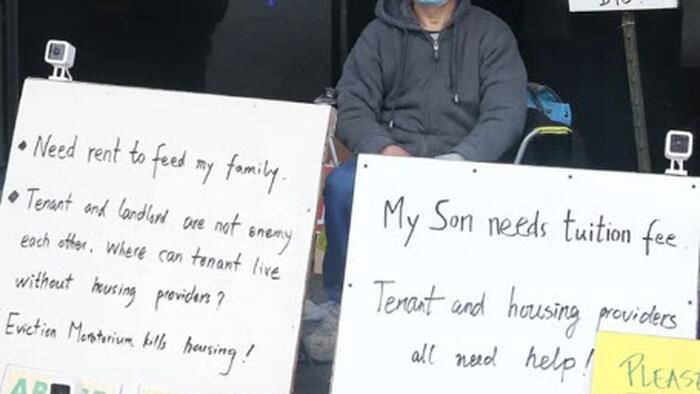 • Need rent to feed my family.
• Tenant and landlord are not enemy
each other. Where can tenant live
without housing providers?
Eviction Moratorium kills housing!
My Son needs tuition fee.
Tenant and housing providers
all need help!
PLEASE